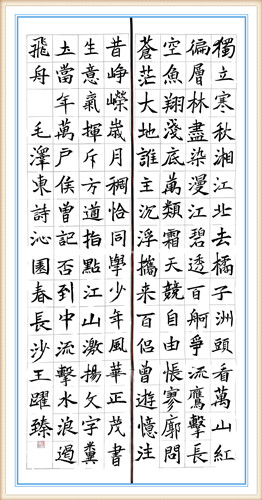 獨立寒秋湘江北去橘子洲頭看萬山紅
徧層林盡染漫江碧透百舸爭流鷹擊長
空魚翔淺底萬類霜天競自由悵寥廓問
蒼茫大地誰主沉浮攜来百侣曾遊憶往
昔崢嶸嵗月稠恰同學少年風華正茂書
生意氣揮斥方遒指點江山激揚文字糞
土當年萬戶侯曾記否到中流擊水浪遏
飛舟 毛澤東詩沁園春長沙王躍臻